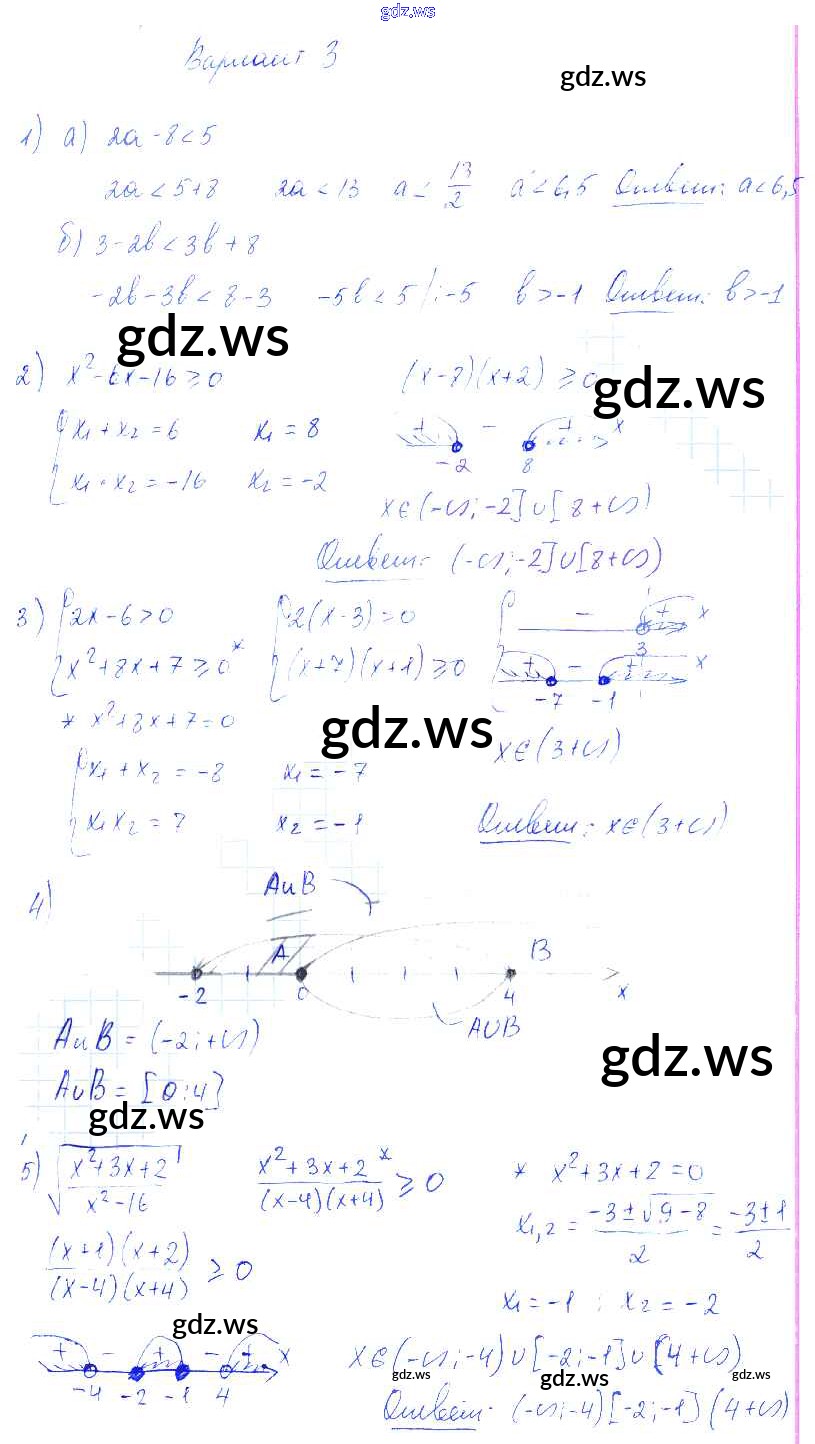 gdz.ws
Вариант 3
gdz.ws
1) а) 2a - 8 < 5
2a < 5+8 2a < 13 a < 13/2 a < 6,5 Ответ: a < 6,5
б) 3 - 2b < 3b + 8
-2b - 3b < 8 - 3 -5b < 5 /: -5 b > -1 Ответ: b > -1
gdz.ws
2) x² - 6x - 16 ≥ 0 (x-8)(x+2) ≥ 0
gdz.ws
{ x₁ + x₂ = 6 x₁ = 8 + - + x
x₁ · x₂ = -16 x₂ = -2 -2 8
x ∈ (-∞; -2] ∪ [8 +∞)
Ответ: (-∞; -2] ∪ [8 +∞)
3) { 2x - 6 > 0 { 2(x-3) > 0 - + x
3
x² + 8x + 7 ≥ 0 * (x+7)(x+1) ≥ 0 + - + x
-7 -1
* x² + 8x + 7 = 0
gdz.ws
x ∈ (3 +∞)
{ x₁ + x₂ = -8 x₁ = -7
x₁ x₂ = 7 x₂ = -1 Ответ: x ∈ (3 +∞)
4) A и B
A B
-2 0 4 x
A∪B
A и B = (-2; +∞)
gdz.ws
A∪B = [0; 4]
gdz.ws
5) √((x² + 3x + 2)/(x² - 16)) (x² + 3x + 2 *)/((x-4)(x+4)) ≥ 0 * x² + 3x + 2 = 0
x₁,₂ = (-3 ± √(9 - 8))/2 = (-3 ± 1)/2
((x+1)(x+2))/((x-4)(x+4)) ≥ 0
x₁ = -1 ; x₂ = -2
gdz.ws
+ - + - + x x ∈ (-∞; -4) ∪ [-2; -1] ∪ (4 +∞)
-4 -2 -1 4
gdz.ws gdz.ws gdz.ws
Ответ: (-∞; -4) [-2; -1] (4 +∞)